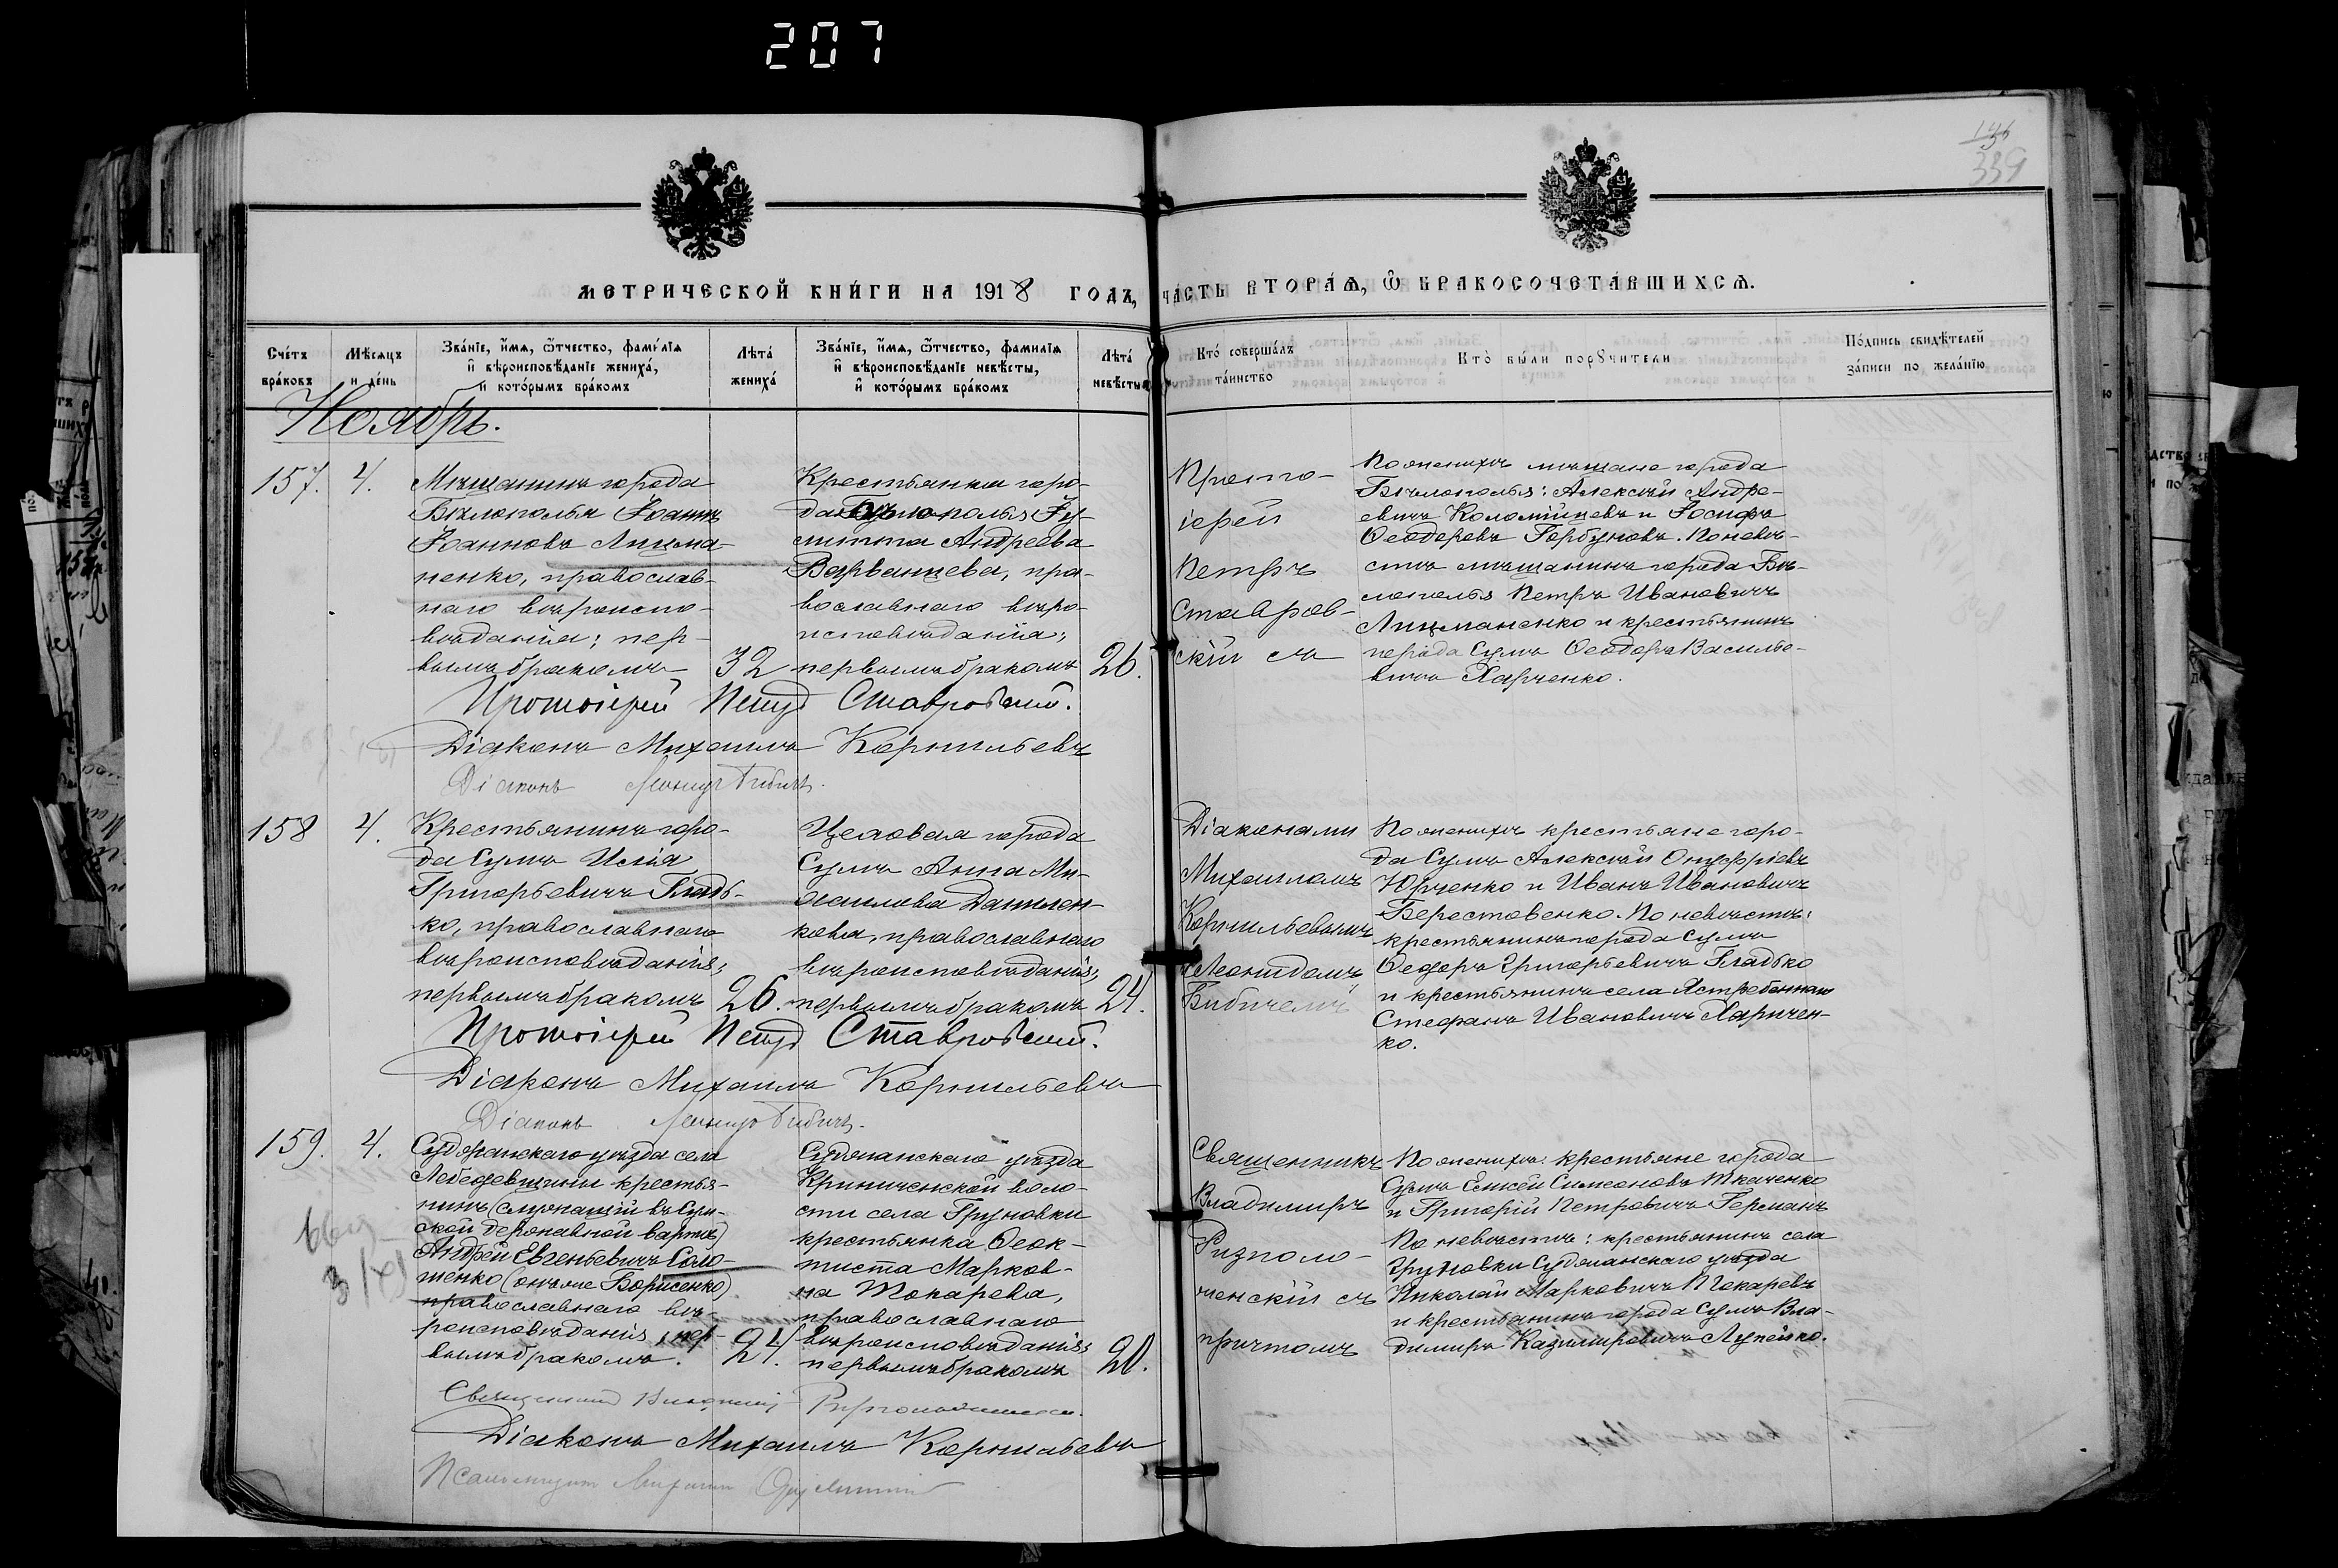 207
136
339
МЕТРИЧЕСКОЙ КНИГИ НА 1918 ГОДЪ, ЧАСТЬ ВТОРАЯ, Ѡ БРАКОСОЧЕТАВШИХСЯ.
Счетъ браковъ
Мѣсяцъ и день
Званіе, имя, ѿчество, фамилія и вѣроисповѣданіе жениха, и которымъ бракомъ
Лѣта жениха
Званіе, имя, ѿчество, фамилія и вѣроисповѣданіе невѣсты, и которымъ бракомъ
Лѣта невѣсты
Кто совершалъ таинство
Кто были порꙋчители
Подпись свидѣтелей записи по желанію
Ноябрь.
157.
4.
Мѣщанинъ города
Бѣлополья Іоаннъ
Іоанновъ Лицма-
ненко, православ-
наго вѣроиспо-
вѣданія; пер-
вымъ бракомъ
32
Крестьянка горо-
да Бѣлополья Іу-
литта Андреева
Варванцева, пра-
вославнаго вѣро-
исповѣданія;
первымъ бракомъ
26.
Прото-
іерей
Петръ
Ставров-
скій съ
По женихѣ мѣщане города
Бѣлополья: Алексѣй Андре-
евичъ Коломійцевъ и Іосифъ
Ѳеодоровъ Горбуновъ. По невѣ-
стѣ мѣщанинъ города Бѣ-
лополья Петръ Ивановичъ
Лицманенко и крестьянинъ
города Сумъ Ѳеодоръ Василье-
вичъ Харченко.
Протоіерей Петръ Ставровскій.
Діаконъ Михаилъ Корнильевъ
Діаконъ Леонидъ Бибичъ.
158
4.
Крестьянинъ горо-
да Сумъ Илія
Григорьевичъ Гладь-
ко, православнаго
вѣроисповѣданія;
первымъ бракомъ
26.
Цеховая города
Сумъ Анна Ми-
хаилова Данилен-
кова, православнаго
вѣроисповѣданія;
первымъ бракомъ
24.
Діаконами
Михаиломъ
Корнильевымъ
и Леонидомъ
Бибичемъ
По женихѣ крестьяне горо-
да Сумъ Алексѣй Онуфріевъ
Юрченко и Иванъ Ивановичъ
Берестовенко. По невѣстѣ:
крестьянинъ города Сумъ
Ѳедоръ Григорьевичъ Гладько
и крестьянинъ села Ястребеннаго
Стефанъ Ивановичъ Харчен-
ко.
Протоіерей Петръ Ставровскій.
Діаконъ Михаилъ Корнильевъ
Діаконъ Леонидъ Бибичъ.
159.
4.
Суджанскаго уѣзда села
Лебедевщины крестья-
нинъ (служащій въ Сум-
ской державной вартѣ)
Андрей Евгеньевичъ Соло-
шенко (онъ же Борисенко)
православнаго вѣ-
роисповѣданія, пер-
вымъ бракомъ.
24.
Суджанскаго уѣзда
Криниченской воло-
сти села Груновки
крестьянка Ѳеок-
тиста Марков-
на Токарева,
православнаго
вѣроисповѣданія;
первымъ бракомъ
20.
Священникъ
Владимиръ
Ризполо-
женскій съ
причтомъ
По женихѣ: крестьяне города
Сумъ Елисей Симеоновъ Ткаченко
и Григорій Петровичъ Германъ
По невѣстѣ: крестьянинъ села
Груновки Суджанскаго уѣзда
Николай Марковичъ Токаревъ
и крестьянинъ города Сумъ Вла-
димиръ Казимировичъ Лупейко.
Священникъ Владимиръ Ризположенскій.
Діаконъ Михаилъ Корнильевъ
Псаломщикъ Михаилъ